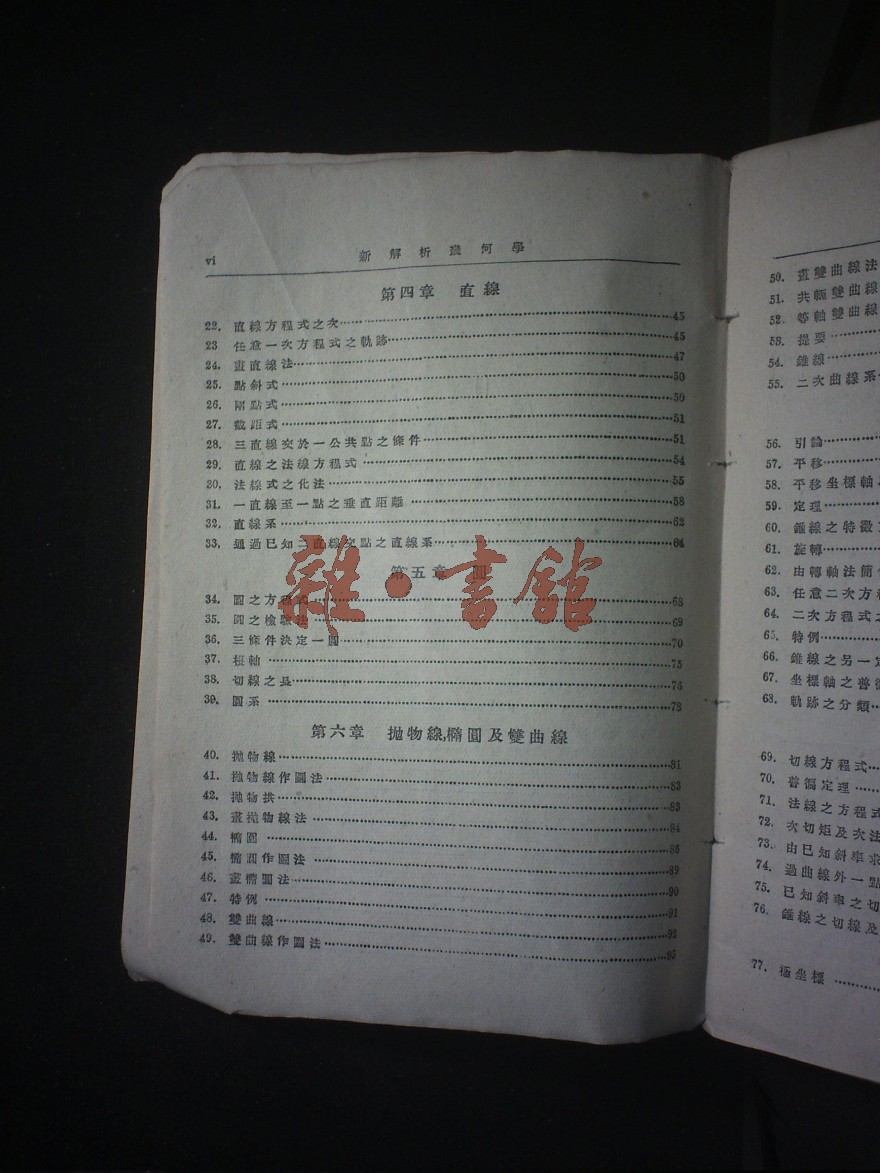 vi 新解析幾何學
第四章 直線
22. 直線方程式之次 45
23 任意一次方程式之軌跡 45
24. 畫直線法 47
25. 點斜式 50
26. 兩點式 50
27. 截距式 51
28. 三直線交於一公共點之條件 51
29. 直線之法線方程式 54
30. 法線式之化法 55
31. 一直線至一點之垂直距離 58
32. 直線系 62
33. 通過已知二直線交點之直線系 64
雜·書館
第五章 圓
34. 圓之方程式 68
35. 圓之檢驗法 69
36. 三條件決定一圓 70
37. 根軸 75
38. 切線之長 76
39. 圓系 78
第六章 拋物線,橢圓及雙曲線
40. 拋物線 81
41. 拋物線作圖法 83
42. 拋物拱 83
43. 畫拋物線法 84
44. 橢圓 86
45. 橢圓作圖法 89
46. 畫橢圓法 90
47. 特例 91
48. 雙曲線 92
49. 雙曲線作圖法 95
50. 畫雙曲線法
51. 共軛雙曲線
52. 等軸雙曲線
53. 提要
54. 錐線
55. 二次曲線系
56. 引論
57. 平移
58. 平移坐標軸
59. 定理
60. 錐線之特徵
61. 旋轉
62. 由轉軸法簡
63. 任意二次方程
64. 二次方程式之
65. 特例
66. 錐線之另一定
67. 坐標軸之普徧
68. 軌跡之分類
69. 切線方程式
70. 普徧定理
71. 法線之方程式
72. 次切距及次法
73. 由已知斜率求
74. 過曲線外一點
75. 已知斜率之切
76. 錐線之切線及
77. 極坐標